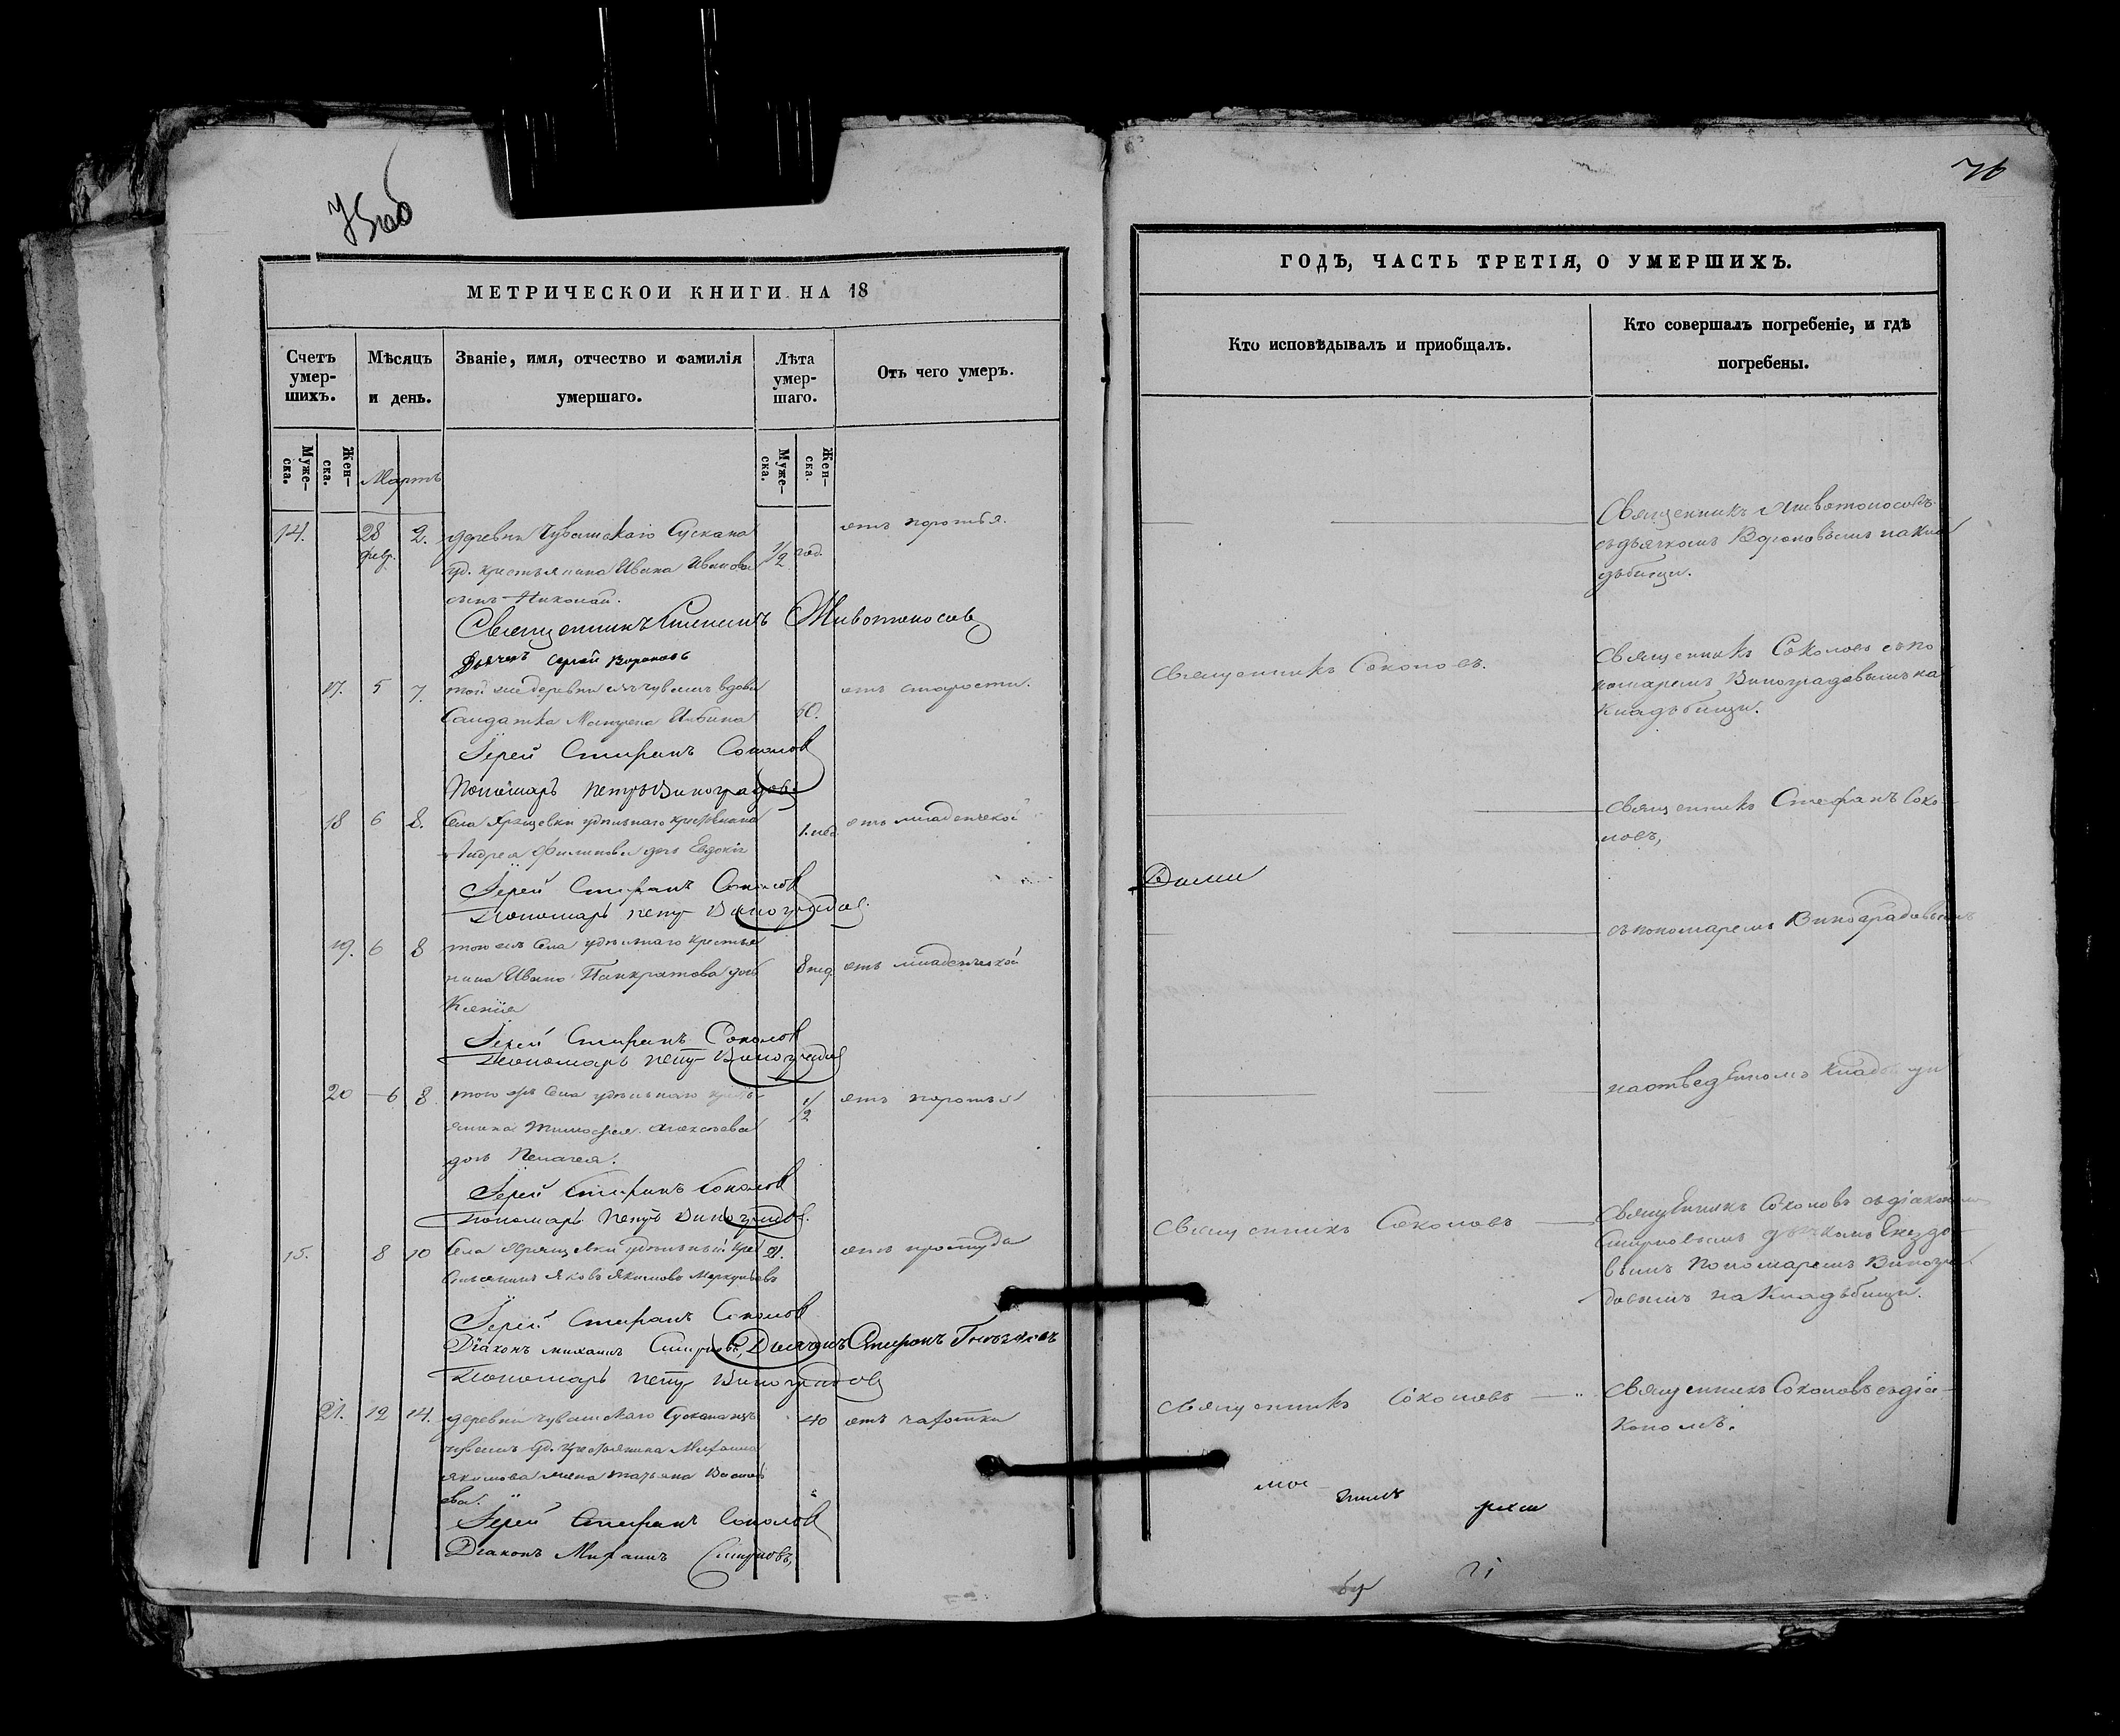 75об
МЕТРИЧЕСКОЙ КНИГИ НА 18
Счетъ умер-шихъ.
Мѣсяцъ и день.
Званіе, имя, отчество и фамилія умершаго.
Лѣта умер-шаго.
Отъ чего умеръ.
Муже-ска.
Жен-ска.
Мартъ
Муже-ска.
Жен-ска.
14. 28 февр. 2. деревни Чувашскаго Сускана 1/2 год. отъ поротья.
уд. крестьянина Ивана Иванова
сынъ Николай.
Священникъ Животоносовъ
Дьячекъ Сергей Вороновъ
17. 5 7. той же деревни изъ чувашъ вдова 60. отъ старости.
Солдатка
Іерей Стефанъ Соколовъ
Пономарь Петръ Виноградовъ
18 6 8. Села удѣльнаго крестьянина 1. нед. отъ младенческой
Андрея Филипова дочь Евдокія
Іерей Стефанъ Соколовъ
Пономарь Петръ Виноградовъ
19. 6 8 того же Села удѣльнаго крестья
нина Ивана Панкратова дочь 8 нед. отъ младенческой
Ксенія
Іерей Стефанъ Соколовъ
Пономарь Петръ Виноградовъ
20 6 8. того же Села удѣльнаго кресть 1/2 отъ поротья
янина Тимофея Алексѣева
дочь Пелагея.
Іерей Стефанъ Соколовъ
Пономарь Петръ Виноградовъ
15. 8 10 Села удѣльный кре 21. отъ простуды
стьянинъ Яковъ Якимовъ Меркульевъ
Іерей Стефанъ Соколовъ
Діаконъ Михаилъ Смирновъ, Дьячекъ Стефанъ
Пономарь Петръ Виноградовъ
21. 12 14. деревни чувашскаго Сускана изъ 40 отъ чахотки
чувашъ уд. крестьянина Михаила
Якимова жена Татьяна Василь
ева.
Іерей Стефанъ Соколовъ
Діаконъ Михаилъ Смирновъ,
76
ГОДЪ, ЧАСТЬ ТРЕТІЯ, О УМЕРШИХЪ.
Кто исповѣдывалъ и приобщалъ.
Кто совершалъ погребеніе, и гдѣ погребены.
Священникъ Животоносовъ
съ дьячкомъ Вороновымъ на кла
дбищи.
Священникъ Соколовъ.
Священникъ Соколовъ съ по
номаремъ Виноградовымъ на
кладбищи.
Священникъ Стефанъ Соко
ловъ,
съ пономаремъ Виноградовымъ
на отведенномъ кладбищи
Священникъ Соколовъ
Священникъ Соколовъ съ діакономъ
Смирновымъ дьячкомъ
вымъ Пономаремъ Виногра
довымъ на кладбищи.
Священникъ Соколовъ
Священникъ Соколовъ съ діа-
кономъ.